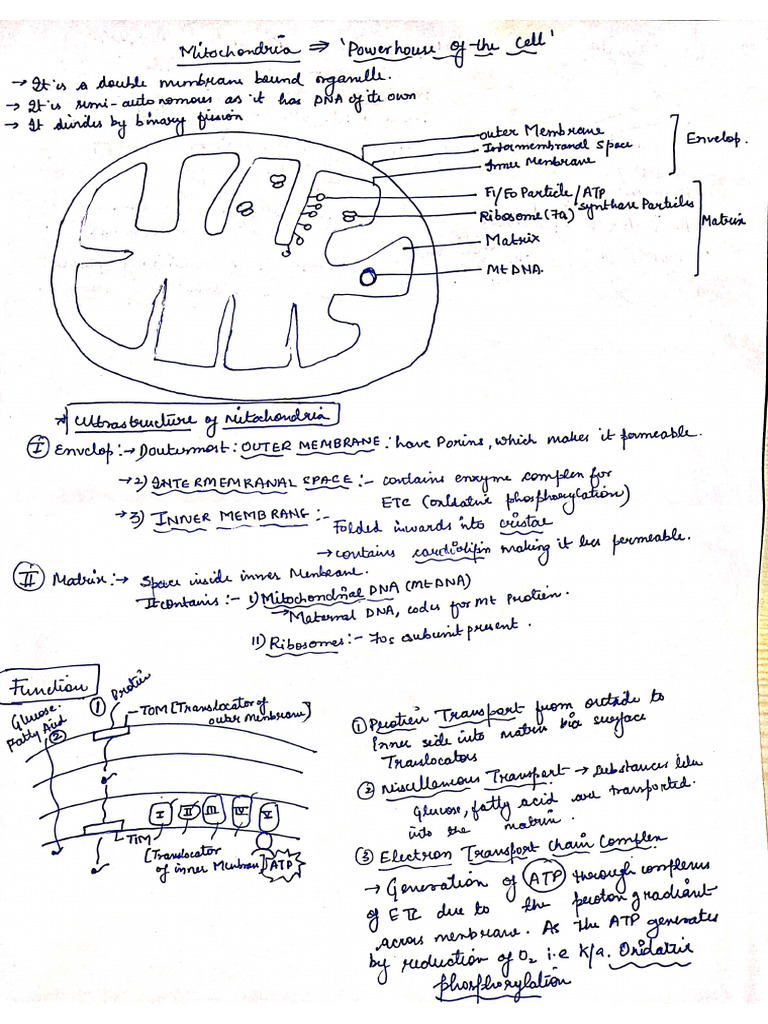 Mitochondria ⇒ 'Powerhouse of the Cell'
→ It is a double membrane bound organelle.
→ It is semi-autonomous as it has DNA of its own
→ It divides by binary fission
outer Membrane
Intermembranal space
Inner Membrane
Envelop.
F1/F0 Particle/ATP synthase Particles
Ribosome (70s)
Matrix
Mt DNA.
Matrix
* Ultrastructure of Mitochondria
I Envelop:→ 1) outermost: OUTER MEMBRANE: have Porins, which makes it permeable.
→2) INTERMEMRANAL SPACE:- contains enzyme complex for
ETC (oxidative phosphorylation)
→3) INNER MEMBRANE:- Folded inwards into cristae
→ contains cardiolipin making it less permeable.
II Matrix:→ Space inside inner Membrane.
It contains:- 1) Mitochondrial DNA (mtDNA)
→ Maternal DNA, codes for Mt Protein.
11) Ribosomes:- 70s subunit present.
Function
Glucose.
Fatty Acid
2
1 Protein
TOM [Translocator of
outer Membrane]
I II III IV V
TIM
[Translocator
of inner Membrane]
ATP
1 Protein Transport from outside to
Inner side into matrix via surface
Translocators
2 Miscellenous Transport → substances like
Glucose, fatty acid are transported.
into the matrix.
3 Electron Transport chain Complex
→ Generation of ATP through complexes
of ETC due to the proton gradiant
across membrane. As the ATP generates
by reduction of O2 i.e k/a. Oxidative
phosphorylation